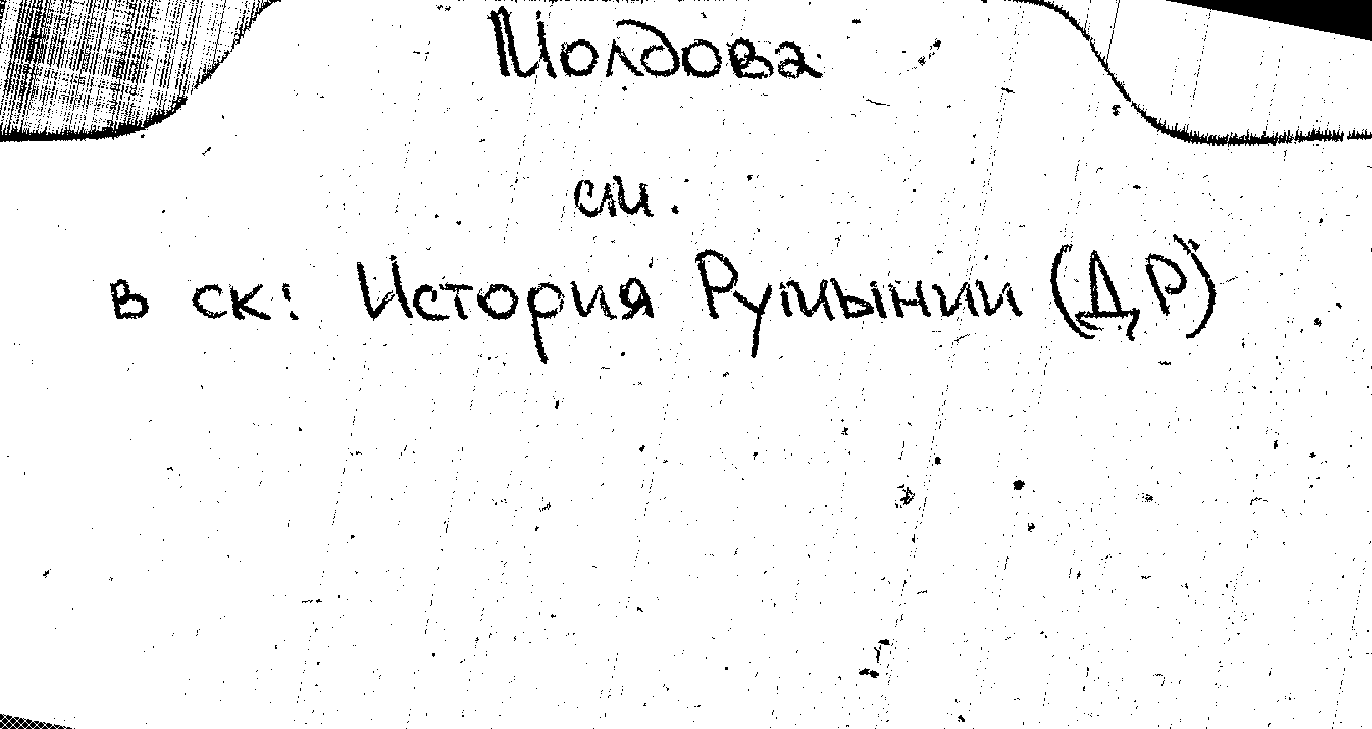 Молдова
см.
в ск: История Румынии (ДР)